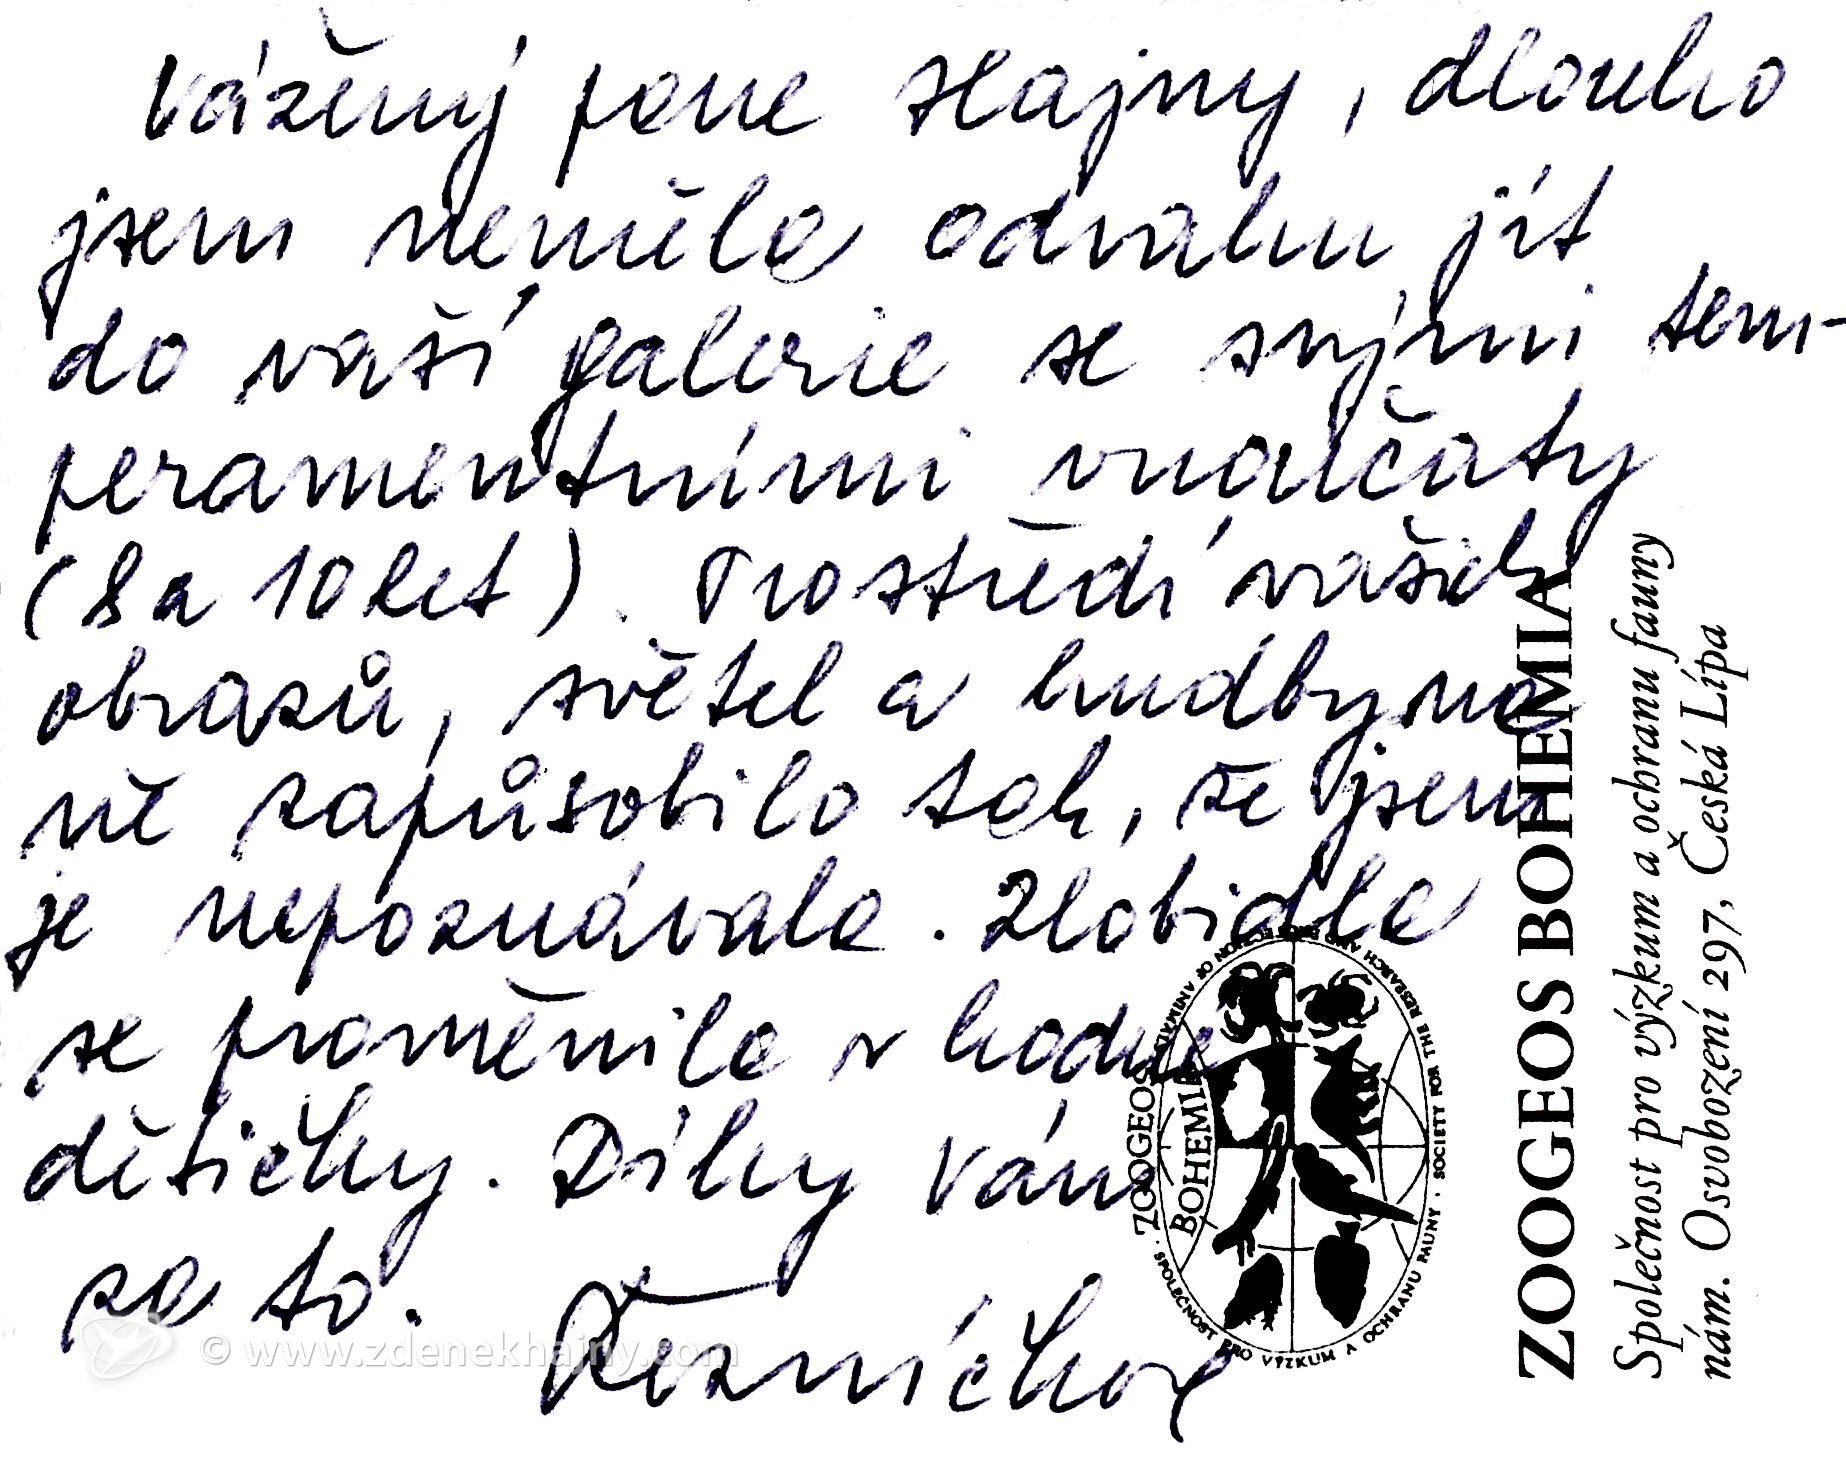 Vážený pane Hajny, dlouho
jsem neměla odvahu jít
do vaší galerie se svými tem-
peramentními vnoučaty
(8 a 10 let). Prostředí vašich
obrazů, světel a hudby na
ně zapůsobilo tak, že jsem
je nepoznávala. Zlobidla
se proměnila v hodné
dětičky. Díky vám
za to. Řezníčková
ZOOGEOS BOHEMIA
Společnost pro výzkum a ochranu fauny
nám. Osvobození 297, Česká Lípa
ZOOGEOS
BOHEMIA
· SPOLEČNOST PRO VÝZKUM A OCHRANU FAUNY · SOCIETY FOR THE RESEARCH AND PROTECTION OF ANIMALS
© www.zdenekhajny.com